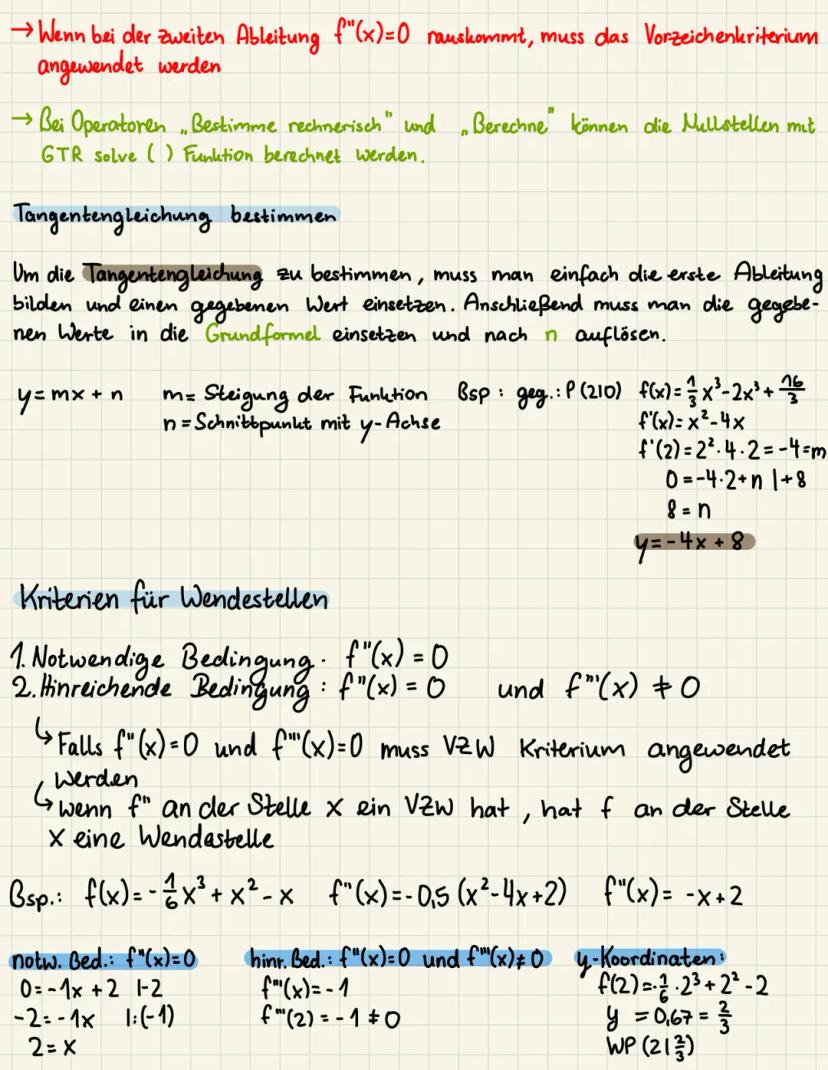 → Wenn bei der zweiten Ableitung f"(x)=0 rauskommt, muss das Vorzeichenkriterium
angewendet werden
→ Bei Operatoren „Bestimme rechnerisch" und „Berechne" können die Nullstellen mit
GTR solve ( ) Funktion berechnet werden.
Tangentengleichung bestimmen
Um die Tangentengleichung zu bestimmen, muss man einfach die erste Ableitung
bilden und einen gegebenen Wert einsetzen. Anschließend muss man die gegebe-
nen Werte in die Grundformel einsetzen und nach n auflösen.
y = mx + n m = Steigung der Funktion Bsp : geg.: P (210) f(x) = 1/3 x³ - 2x³ + 16/3
n = Schnittpunkt mit y-Achse f'(x) = x² - 4x
f'(2) = 2² · 4 · 2 = -4 = m
0 = -4·2+n |+8
8 = n
y = -4x + 8
Kriterien für Wendestellen
1. Notwendige Bedingung : f"(x) = 0
2. Hinreichende Bedingung : f"(x) = 0 und f"'(x) ≠ 0
↳ Falls f"(x)=0 und f"'(x)=0 muss VZW Kriterium angewendet
werden
↳ wenn f" an der Stelle x ein VZW hat , hat f an der Stelle
x eine Wendestelle
Bsp.: f(x) = -1/6 x³ + x² - x f"(x) = -0,5 (x²-4x+2) f"(x) = -x+2
notw. Bed.: f"(x)=0 hinr. Bed.: f"(x)=0 und f"'(x)≠0 y-Koordinaten:
0 = -1x + 2 |-2 f"'(x) = -1 f(2) = -1/6 · 2³ + 2² - 2
-2 = -1x |:(-1) f"'(2) = -1 ≠ 0 y = 0,67 = 2/3
2 = x WP (2 | 2/3)